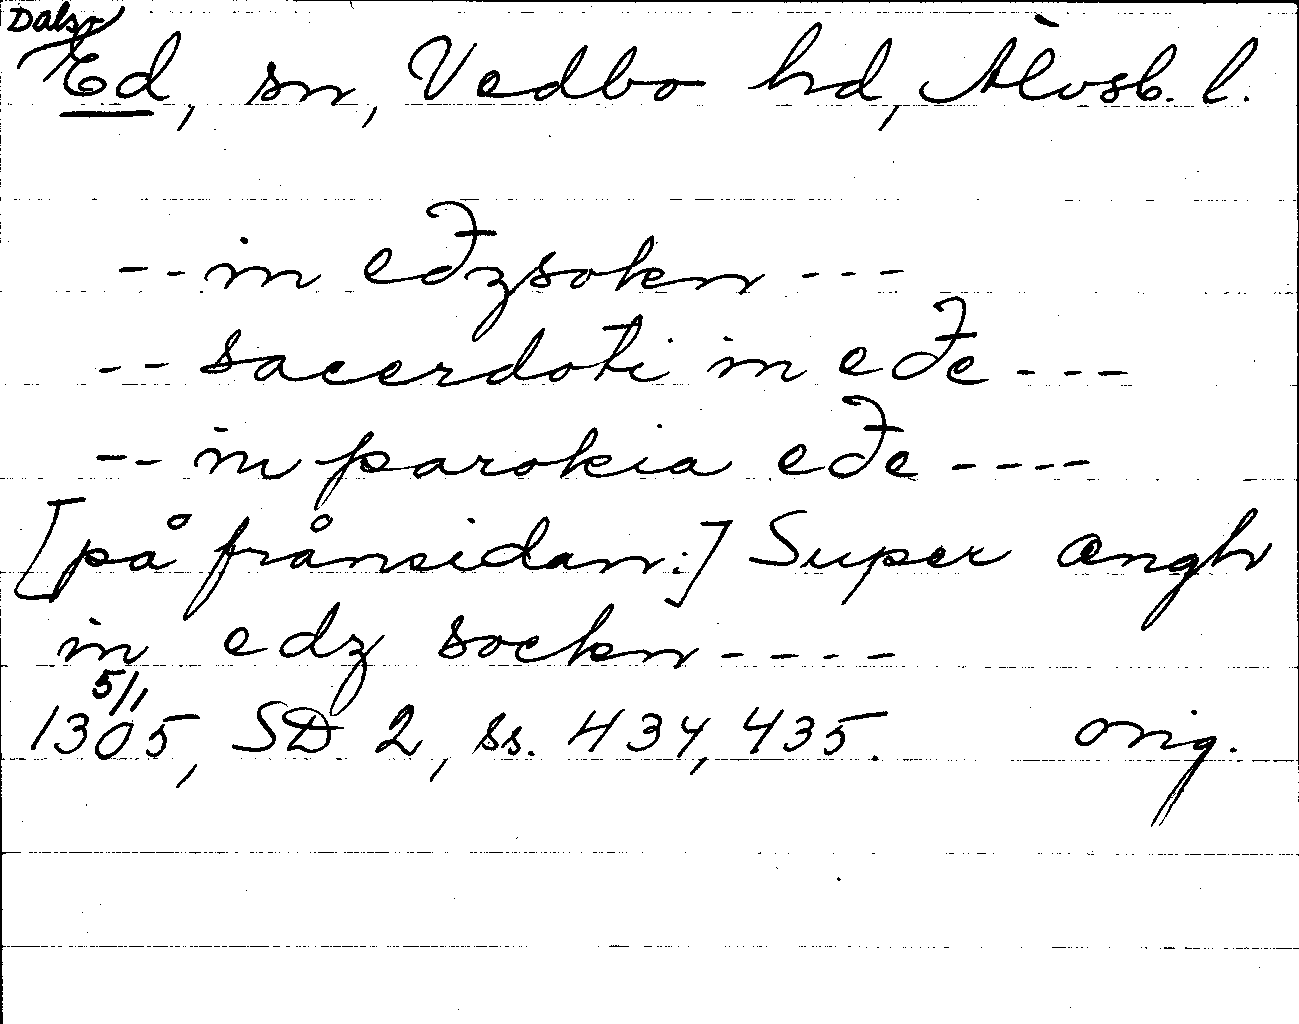 Dals-
Ed, sn, Vedbo hd, Älvsb. l.
-- in eðzsokn ---
-- sacerdoti in eðe ---
-- in parokia eðe ----
[på frånsidan:] Super ængh
in edz sockn ----
5/1
1305, SD 2, ss. 434, 435. orig.